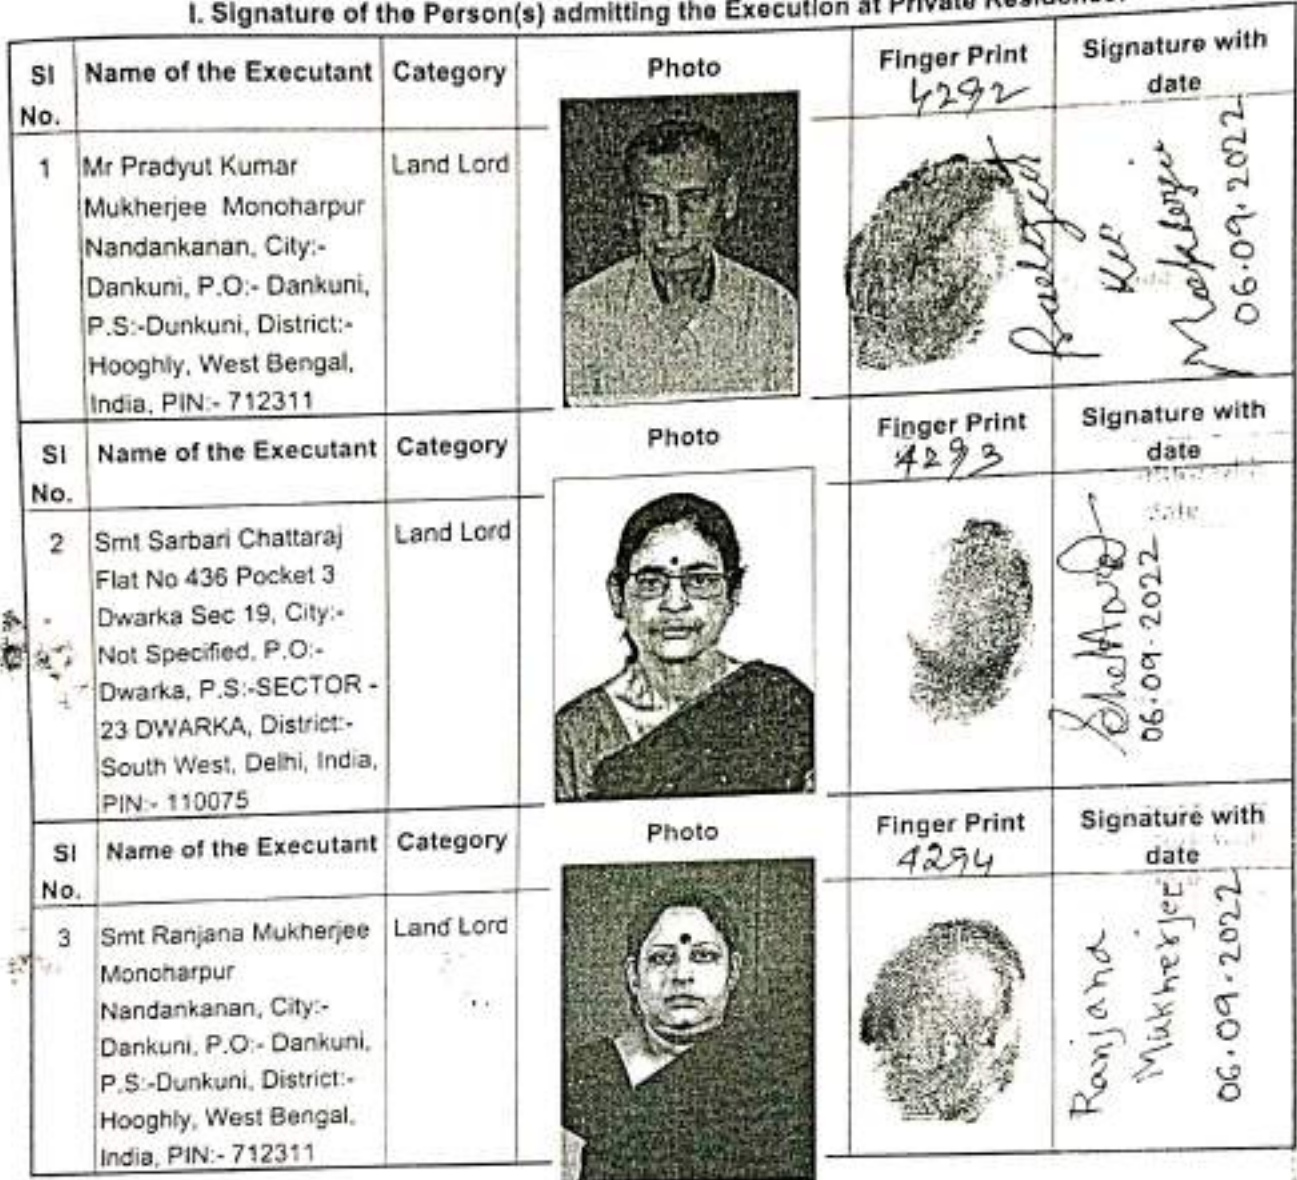 I. Signature of the Person(s) admitting the Execution at Private Residence.
Sl No. Name of the Executant Category Photo Finger Print Signature with date
4292
1 Mr Pradyut Kumar Land Lord
Mukherjee Monoharpur
Nandankanan, City:-
Dankuni, P.O:- Dankuni,
P.S:-Dunkuni, District:-
Hooghly, West Bengal,
India, PIN:- 712311
Mukherjee
06.09.2022
Sl No. Name of the Executant Category Photo Finger Print Signature with date
4293
date
2 Smt Sarbari Chattaraj Land Lord
Flat No 436 Pocket 3
Dwarka Sec 19, City:-
Not Specified, P.O:-
Dwarka, P.S:-SECTOR -
23 DWARKA, District:-
South West, Delhi, India,
PIN:- 110075
06.09.2022
Sl No. Name of the Executant Category Photo Finger Print Signature with date
4294
3 Smt Ranjana Mukherjee Land Lord
Monoharpur
Nandankanan, City:-
Dankuni, P.O:- Dankuni,
P.S:-Dunkuni, District:-
Hooghly, West Bengal,
India, PIN:- 712311
Ranjana
Mukherjee
06.09.2022